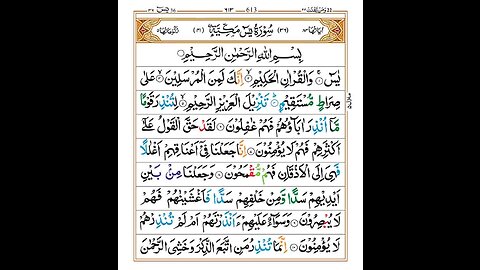 سُوْرَةُ يٰسٓ مَكِّيَّةٌ
بِسْمِ اللّٰهِ الرَّحْمٰنِ الرَّحِيْمِ
يٰسٓ ۝ وَالْقُرْاٰنِ الْحَكِيْمِ ۝ اِنَّكَ لَمِنَ الْمُرْسَلِيْنَ ۝ عَلٰى
صِرَاطٍ مُّسْتَقِيْمٍ ۝ تَنْزِيْلَ الْعَزِيْزِ الرَّحِيْمِ ۝ لِتُنْذِرَ قَوْمًا
مَّاۤ اُنْذِرَ اٰبَآؤُهُمْ فَهُمْ غٰفِلُوْنَ ۝ لَقَدْ حَقَّ الْقَوْلُ عَلٰۤى
اَكْثَرِهِمْ فَهُمْ لَا يُؤْمِنُوْنَ ۝ اِنَّا جَعَلْنَا فِيْۤ اَعْنَاقِهِمْ اَغْلٰلًا
فَهِيَ اِلَى الْاَذْقَانِ فَهُمْ مُّقْمَحُوْنَ ۝ وَجَعَلْنَا مِنْۢ بَيْنِ
اَيْدِيْهِمْ سَدًّا وَّمِنْ خَلْفِهِمْ سَدًّا فَاَغْشَيْنٰهُمْ فَهُمْ
لَا يُبْصِرُوْنَ ۝ وَسَوَآءٌ عَلَيْهِمْ ءَاَنْذَرْتَهُمْ اَمْ لَمْ تُنْذِرْهُمْ
لَا يُؤْمِنُوْنَ ۝ اِنَّمَا تُنْذِرُ مَنِ اتَّبَعَ الذِّكْرَ وَخَشِيَ الرَّحْمٰنَ